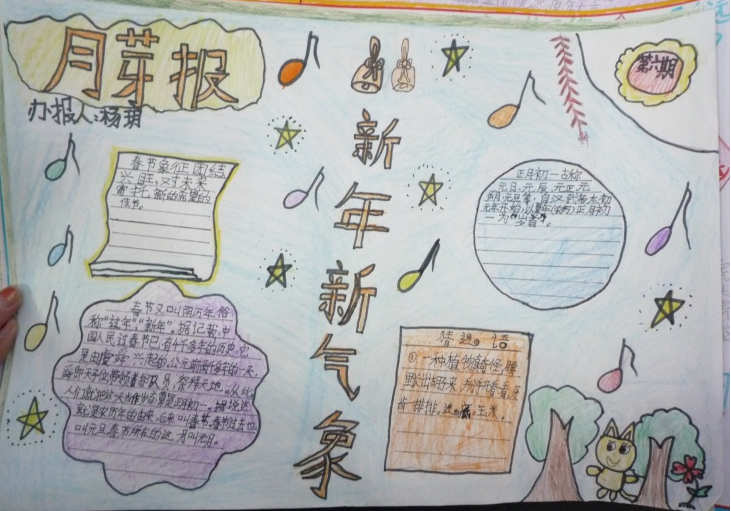 月芽报
办报人:杨
第六期
新年新气象
春节象征团结
兴旺,对未来
寄托新的希望的
佳节。
正月初一古称
元旦、元辰、元正、元
朔、元旦等,自汉武帝太初
元年开始,以夏年(农历)正月初
一为"岁首"
春节又叫阴历年,俗
称"过年","新年"。据记载,中
国人民过春节已有4千多年的历史,它
是由虞舜兴起的,公元前两千多年的一天,
舜即天子位带领着部队员,祭拜天地。从此
人们就把这天当作岁首算是正月初一。据说这
就是农历新年的由来,后来叫春节,春节过去也
叫元旦春节所在的这一月叫元月。
猜谜。语
①一种植物
排排, 谜底 玉米。